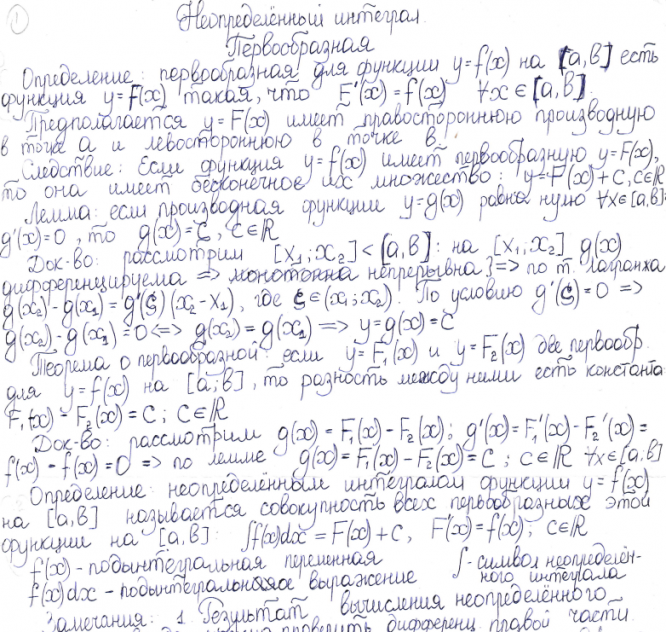 1
Неопределённый интеграл
Первообразная
Определение: первообразная для функции y=f(x) на [a,b] есть
функция y=F(x) такая, что F'(x)=f(x) ∀x∈[a,b]
Предполагается y=F(x) имеет правостороннюю производную
в точке a и левостороннюю в точке b.
Следствие: Если функция y=f(x) имеет первообразную y=F(x),
то она имеет бесконечное их множество: y=F(x)+C, C∈ℝ
Лемма: если производная функции y=g(x) равна нулю ∀x∈[a,b]:
g'(x)=0, то g(x)=C, C∈ℝ
Док-во: рассмотрим [x₁;x₂]<[a,b]: на [x₁;x₂] g(x)
дифференцируема => непрерывна } => по т. Лагранжа
g(x₂)-g(x₁)=g'(ξ)(x₂-x₁), где ξ∈(x₁;x₂). По условию g'(ξ)=0 =>
g(x₂)-g(x₁)=0 <=> g(x₂)=g(x₁) => y=g(x)=C
Теорема о первообразной: если y=F₁(x) и y=F₂(x) две первообр.
для y=f(x) на [a;b], то разность между ними есть константа
F₁(x)-F₂(x)=C; C∈ℝ
Док-во: рассмотрим g(x)=F₁(x)-F₂(x); g'(x)=F₁'(x)-F₂'(x)=
f(x)-f(x)=0 => по лемме g(x)=F₁(x)-F₂(x)=C; C∈ℝ ∀x∈[a,b]
Определение: неопределённым интегралом функции y=f(x)
на [a,b] называется совокупность всех первообразных этой
функции на [a,b]: ∫f(x)dx=F(x)+C, F'(x)=f(x), C∈ℝ
f(x)-подынтегральная переменная ∫-символ неопределён-
f(x)dx-подынтегральное выражение ного интеграла
Замечания: 1. Результат вычисления неопределённого
проверить дифференц. правой части